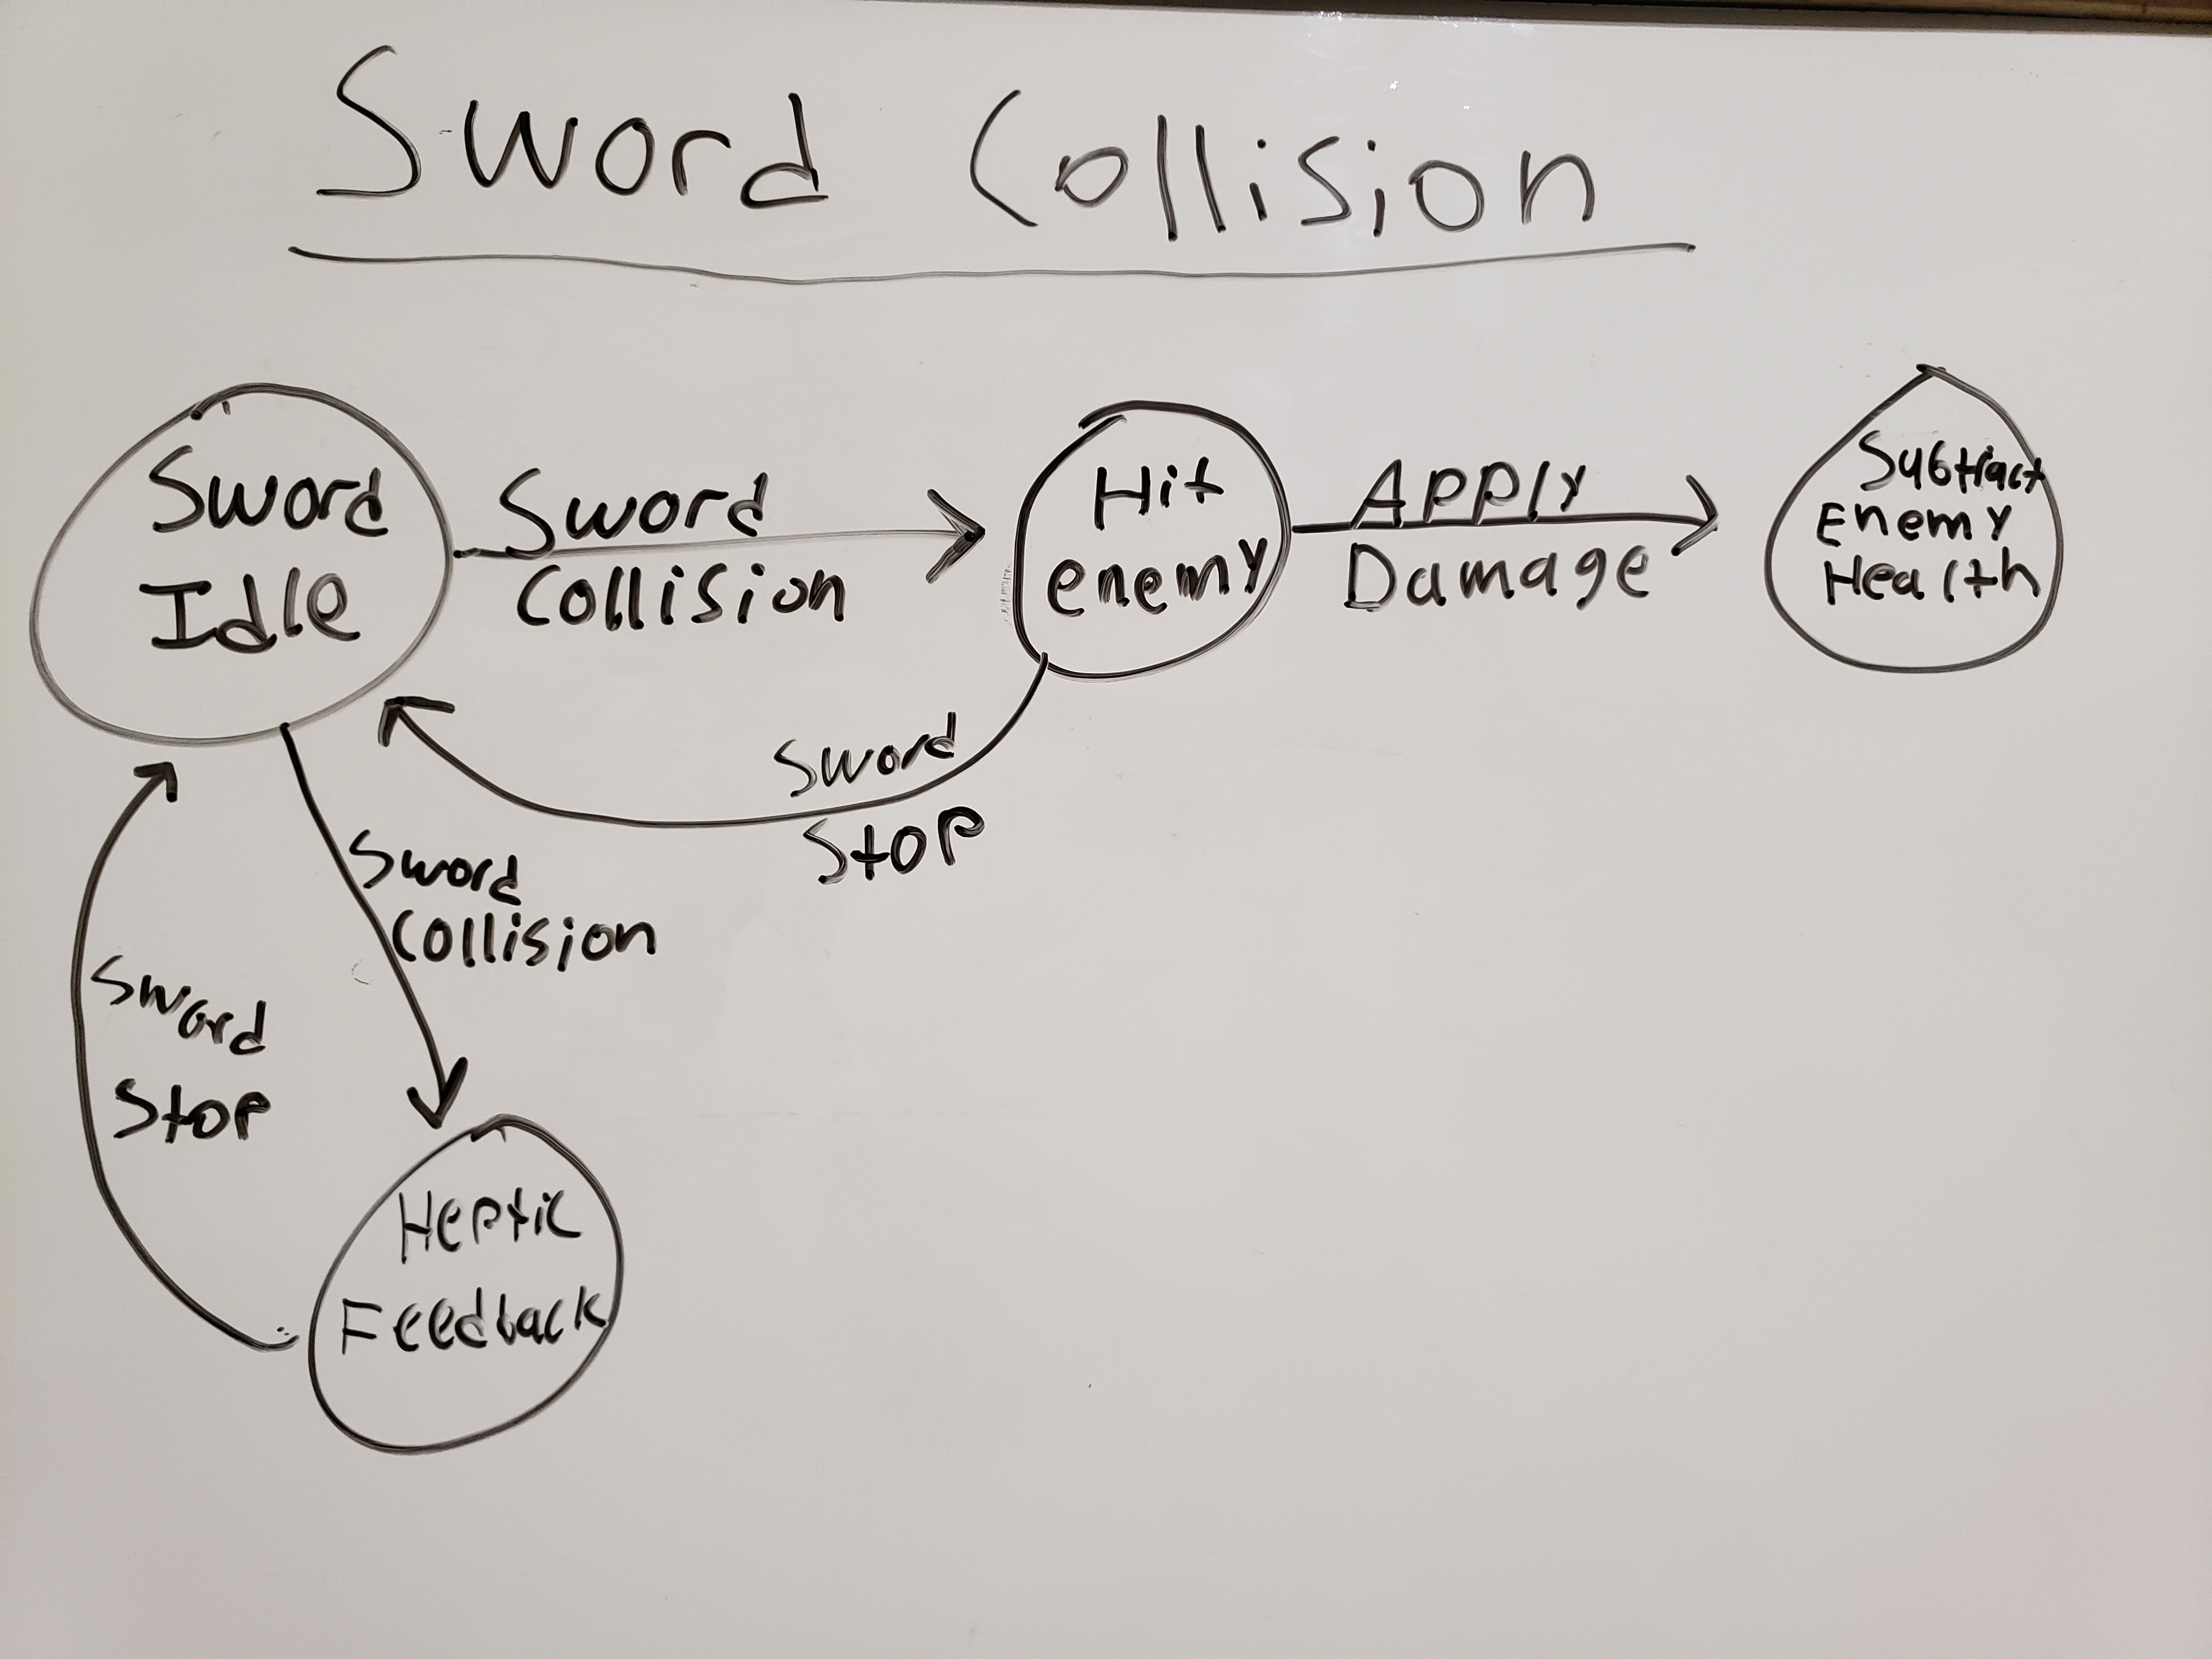 Sword Collision
Sword
Idle
Sword
Collision
Hit
enemy
Apply
Damage
Subtract
Enemy
Health
Sword
Stop
Sword
Collision
Sword
Stop
Heptic
Feedback